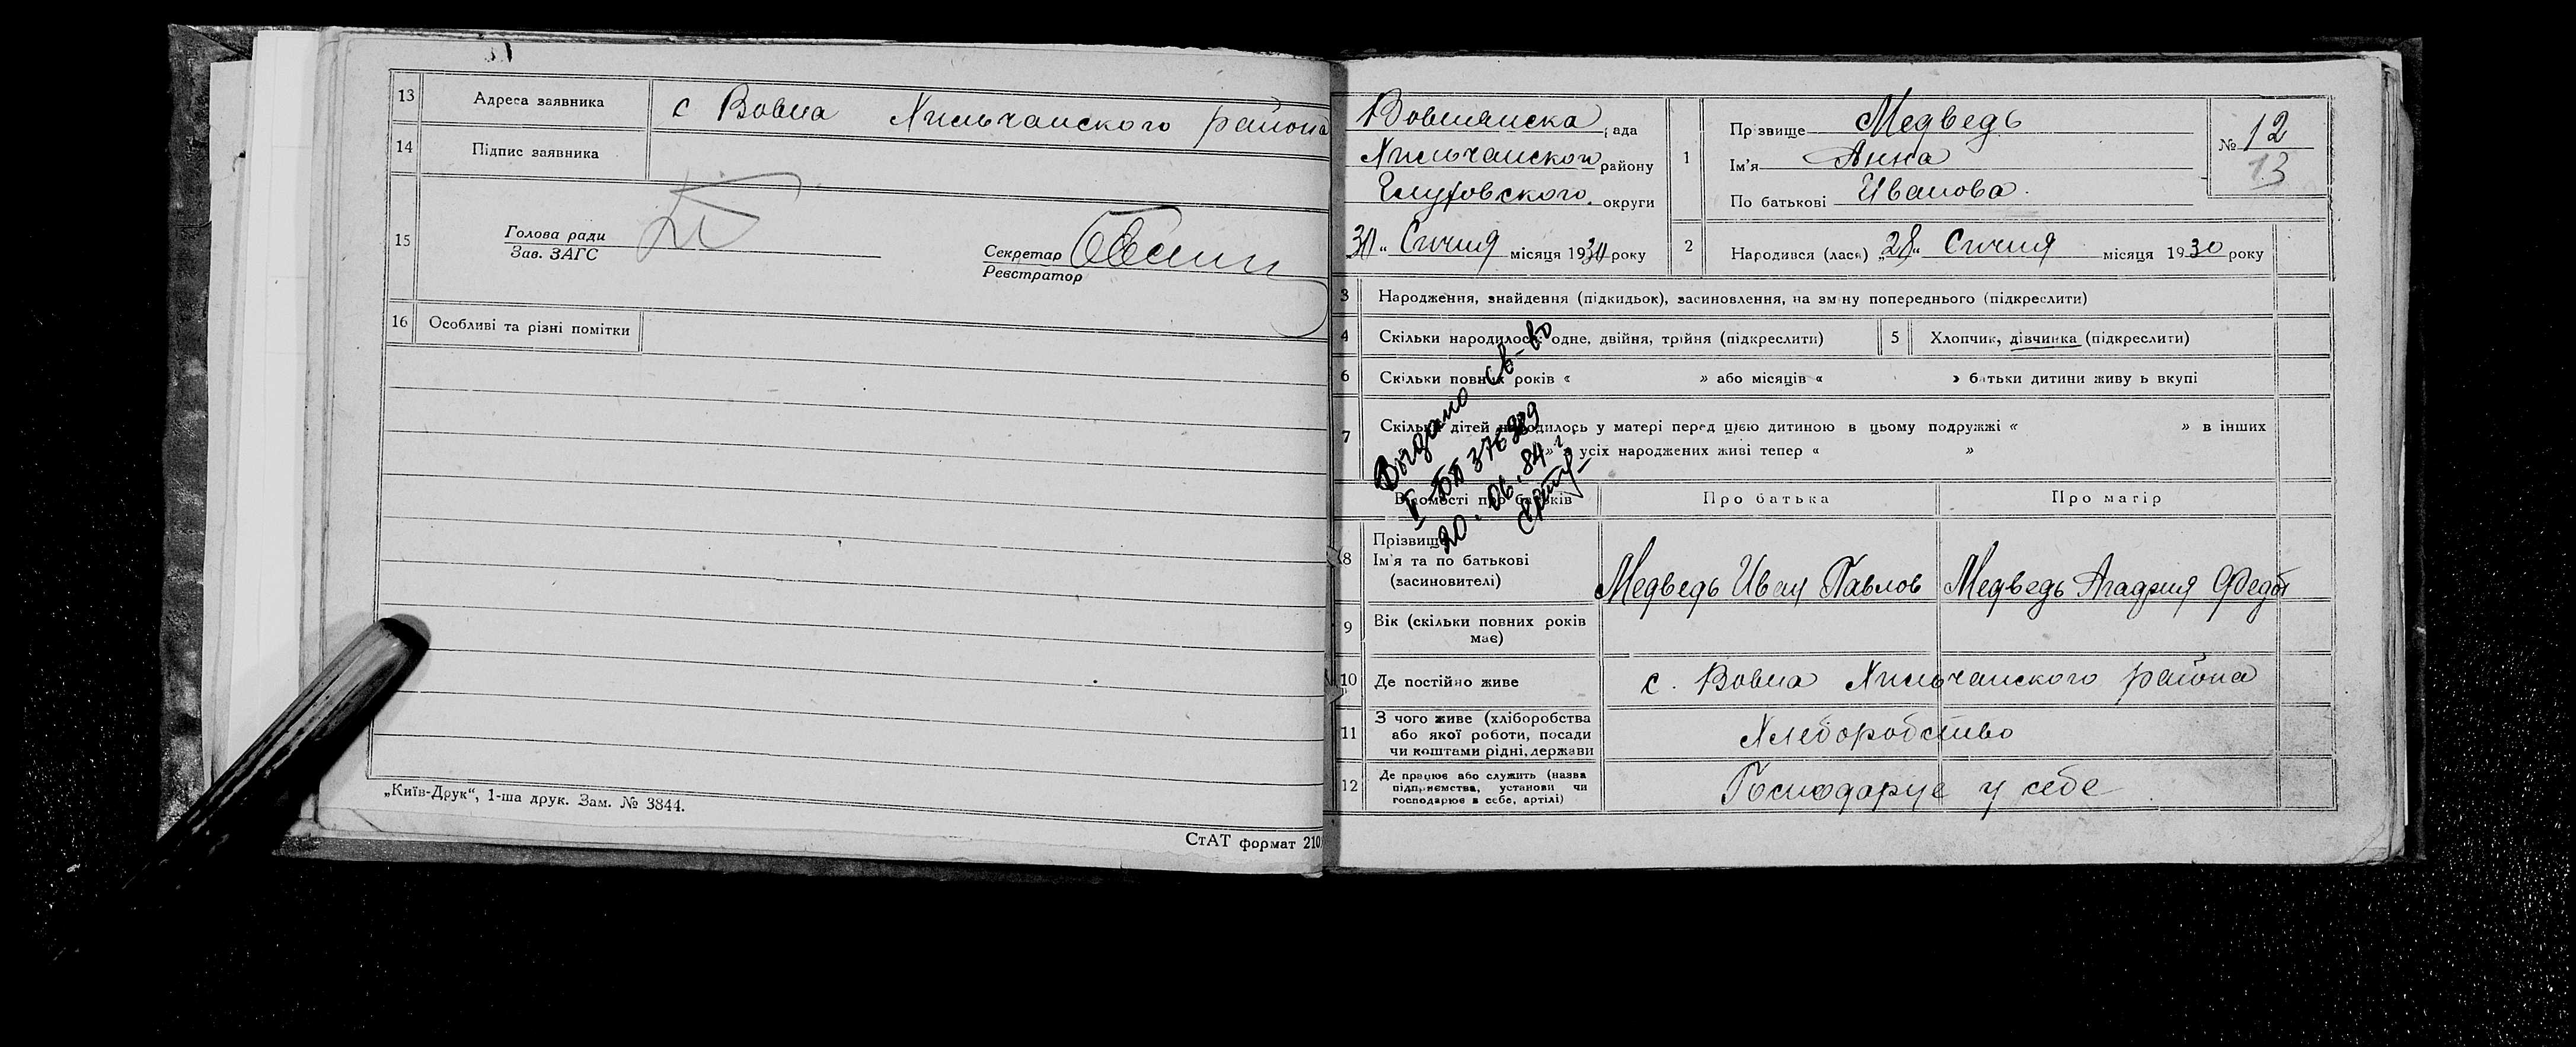 13 Адреса заявника с Вовна Хильчанского района
14 Підпис заявника
15 Голова ради
Зав. ЗАГС
Секретар
Реєстратор
16 Особливі та різні помітки
„Київ-Друк“, 1-ша друк. Зам. № 3844.
СтАТ формат 210
Вовнянска рада
Хильчанского району
Глуховского округи
30 „ Січня місяця 1930 року
1 Прізвище Медведь
Ім'я Анна
По батькові Иванова
№ 12
13
2 Народився (лася) „28“ Січня місяця 1930 року
3 Народження, знайдення (підкидьок), засиновлення, на зміну попереднього (підкреслити)
4 Скільки народилося: одне, двійня, трійня (підкреслити)
5 Хлопчик, дівчинка (підкреслити)
6 Скільки повних років « » або місяців « » батьки дитини живуть вкупі
7 Скільки дітей народилось у матері перед цією дитиною в цьому подружжі « » в інших
» з усіх народжених живі тепер « »
Выдано св-во
20.06.84 г
Відомості про батьків
Про батька
Про матір
8 Прізвище
Ім'я та по батькові
(засиновителі)
Медведь Иван Павлов
Медведь Агафия Федот
9 Вік (скільки повних років
має)
10 Де постійно живе с. Вовна Хильчанского района
11 З чого живе (хліборобства
або якої роботи, посади
чи коштами рідні, держави
Хлеборобство
12 Де працює або служить (назва
підприємства, установи чи
господарює в себе, артілі)
Господарує у себе